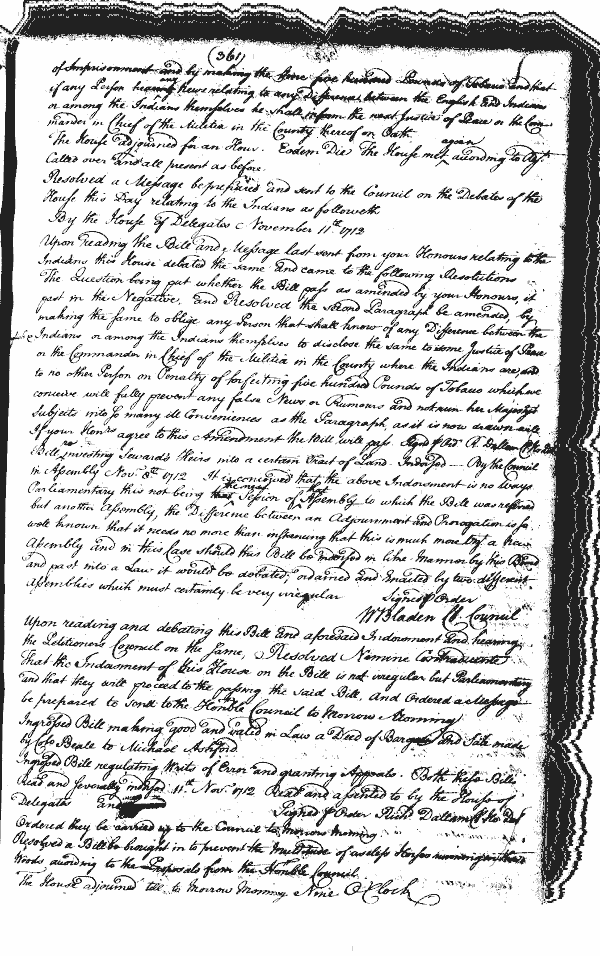 (361)
of Imprisonment and by making the same five hundred Pounds of Tobaco and that
if any Person hearing any News relating to any Difference between the English and Indians
or among the Indians themselves he shall inform the next Justice of Peace or the Com
mander in Chief of the Militia in the County thereof on Oath
The House adjourned for an Hour. Eodem Die The House met again according to Adjt.
Called over and all present as before.
Resolved a Message be prepared and sent to the Council on the Debates of the
House this Day relating to the Indians as followeth
By the House of Delegates November 11th 1712
Upon reading the Bill and Message last sent from your Honours relating to the
Indians this House debated the same and came to the following Resolutions
The Question being put whether the Bill pass as amended by your Honours, it
past in the Negative, and Resolved the second Paragraph be amended, by
making the same to oblige any Person that shall know of any Difference between the
Indians or among the Indians themselves to disclose the same to some Justice of Peace
or the Commander in Chief of the Militia in the County where the Indians are, and
to no other Person on Penalty of forfeiting five hundred Pounds of Tobaco which we
conceive will fully prevent any false News or Rumours and not run her Majestys
Subjects into so many ill Conveniences as the Paragraph, as it is now drawn will
If your Honrs agree to this Amendment the Bill will pass Signed p Order R. Dallam Cl Ho Del
Bill for investing Sewards Heirs into a certain Tract of Land. Indorsed — By the Council
in Assembly Novr 8th 1712 It is conceived that the above Indorsment is no Ways
Parliamentary this not being the next Session of that Assembly to which the Bill was referred
but another Assembly, the Difference between an Adjournment and Prorogation is so
well known that it needs no more than informing that this is much more being a new
Assembly and in this Case should this Bill be indorsed in like Manner by this Board
and past into a Law it would be debated, ordained and enacted by two different
Assemblies which must certainly be very irregular Signed p Order
W Bladen Cl Council
Upon reading and debating this Bill and aforesaid Indorsment and hearing
the Petitioners Council on the same, Resolved Nemine Contradicente
That the Indorsment of this House on the Bill is not irregular but Parliamentary
and that they will proceed to the passing the said Bill, And Ordered a Message
be prepared to send to the Honble Council to Morrow Morning
Ingrossed Bill making good and valid in Law a Deed of Bargain and Sale made
by Colo Beale to Michael Ashford
Ingrossed Bill regulating Writs of Error and granting Appeals. Both these Bills
Read and severally indorsed 11th Novr 1712 Read and assented to by the House of
Delegates and Signed p Order Richd Dallam Cl Ho Del
Ordered they be carried up to the Council to Morrow Morning
Resolved a Bill be brought in to prevent the Multitude of useless Horses running in the
Woods according to the Proposals from the Honble Council.
The House adjourned till to Morrow Morning Nine O Clock